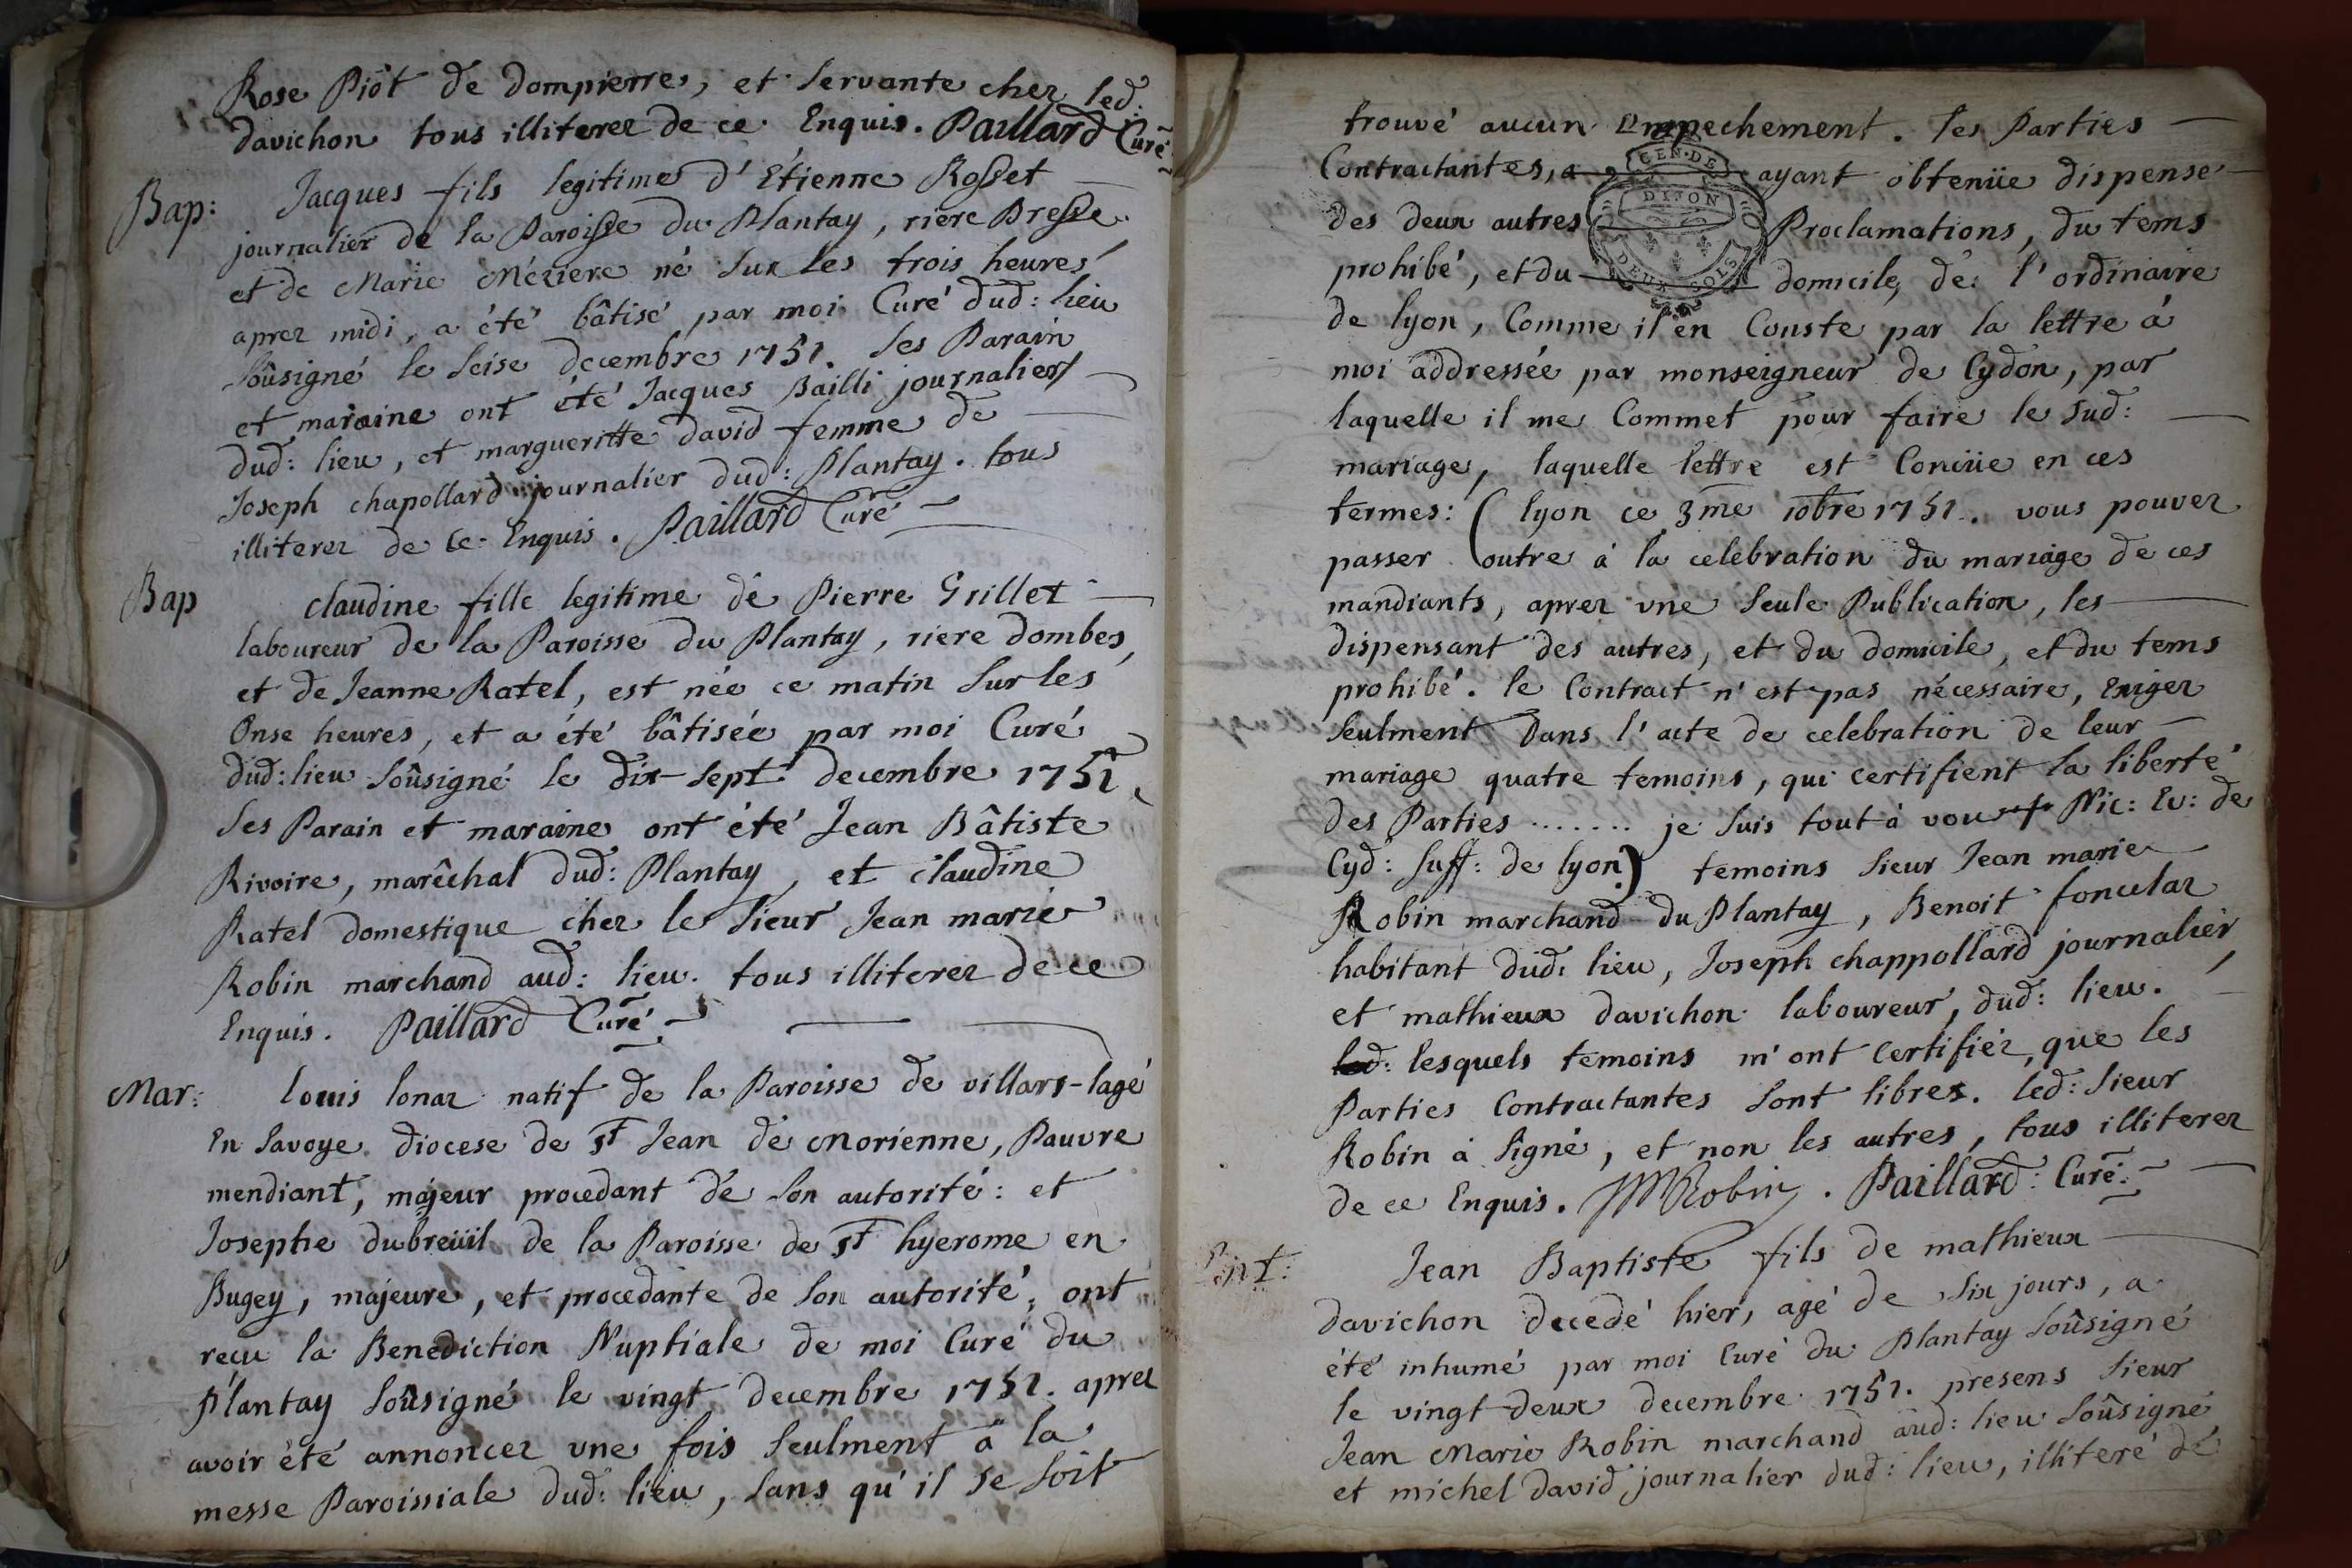 Rose Piôt de dompierre, et servante chez led:
davichon tous illiterez de ce Enquis. Paillard Curé
Bap: Jacques fils legitime d'Étienne Rosset
journalier de la Paroisse du Plantay, riere Bresse
et de Marie Méziere né sur les trois heures
aprez midi, a été bâtisé par moi Curé dud: lieu
soûsigné le seise decembre 1751. ses Parain
et maraine ont été Jacques Bailli journalier
dud: lieu, et margueritte david femme de
Joseph chapollard journalier dud: Plantay. tous
illiterez de ce Enquis. Paillard Curé
Bap claudine fille legitime de Pierre Grillet
laboureur de la Paroisse du Plantay, riere dombes,
et de Jeanne Ratel, est née ce matin sur les
Onse heures, et a été bâtisée par moi Curé
dud: lieu soûsigné le dix-sept decembre 1751,
ses Parain et maraine ont été Jean Bâtiste
Rivoire, marêchal dud: Plantay, et claudine
Ratel domestique chez le sieur Jean marie
Robin marchand aud: lieu. tous illiterez de ce
Enquis. Paillard Curé
Mar: louis lonaz natif de la Paroisse de villars-lagé
En savoye diocese de st Jean de Morienne, Pauvre
mendiant, majeur procedant de son autorité: et
Josephe dubreüil de la Paroisse de st hyerome en
Bugey, majeure, et procedante de son autorité, ont
reçu la Benediction Nuptiale de moi Curé du
Plantay soûsigné le vingt decembre 1751. aprez
avoir été annoncez une fois seulment à la
messe Paroissiale dud: lieu, sans qu'il se soit
trouvé aucun Empechement. les Parties
Contractantes, ayant obtenüe dispense
GEN. DE
DIJON
DEUX SOLS
des deux autres Proclamations, du tems
prohibé, et du domicile, de l'ordinaire
de lyon, Comme il en Conste par la lettre à
moi addressée par monseigneur de Cydon, par
laquelle il me Commet pour faire le sud:
mariage, laquelle lettre est Conçüe en ces
termes: (lyon ce 3me 10bre 1751. vous pouvez
passer outre à la celebration du mariage de ces
mandiants, aprez une seule Publication, les
dispensant des autres, et du domicile, et du tems
prohibé. le Contract n'est pas nécessaire, Exigez
seulment dans l'acte de celebration de leur
mariage quatre temoins, qui certifient la liberté
des Parties ....... je suis tout à vous Nic: Ev: de
Cyd: suff: de lyon) temoins sieur Jean marie
Robin marchand du Plantay, Benoit foncelaz
habitant dud: lieu, Joseph chappollard journalier,
et mathieux davichon laboureur, dud: lieu.
led: lesquels temoins m'ont certifiez, que les
Parties Contractantes sont libres. led: sieur
Robin à signé, et non les autres, tous illiterez
de ce Enquis. JMRobin. Paillard Curé.
Ent: Jean Baptiste fils de mathieux
davichon decedé hier, agé de six jours, a
été inhumé par moi Curé du Plantay soûsigné
le vingt-deux decembre 1751. presens sieur
Jean Marie Robin marchand aud: lieu soûsigné
et michel david journalier dud: lieu, illiteré de